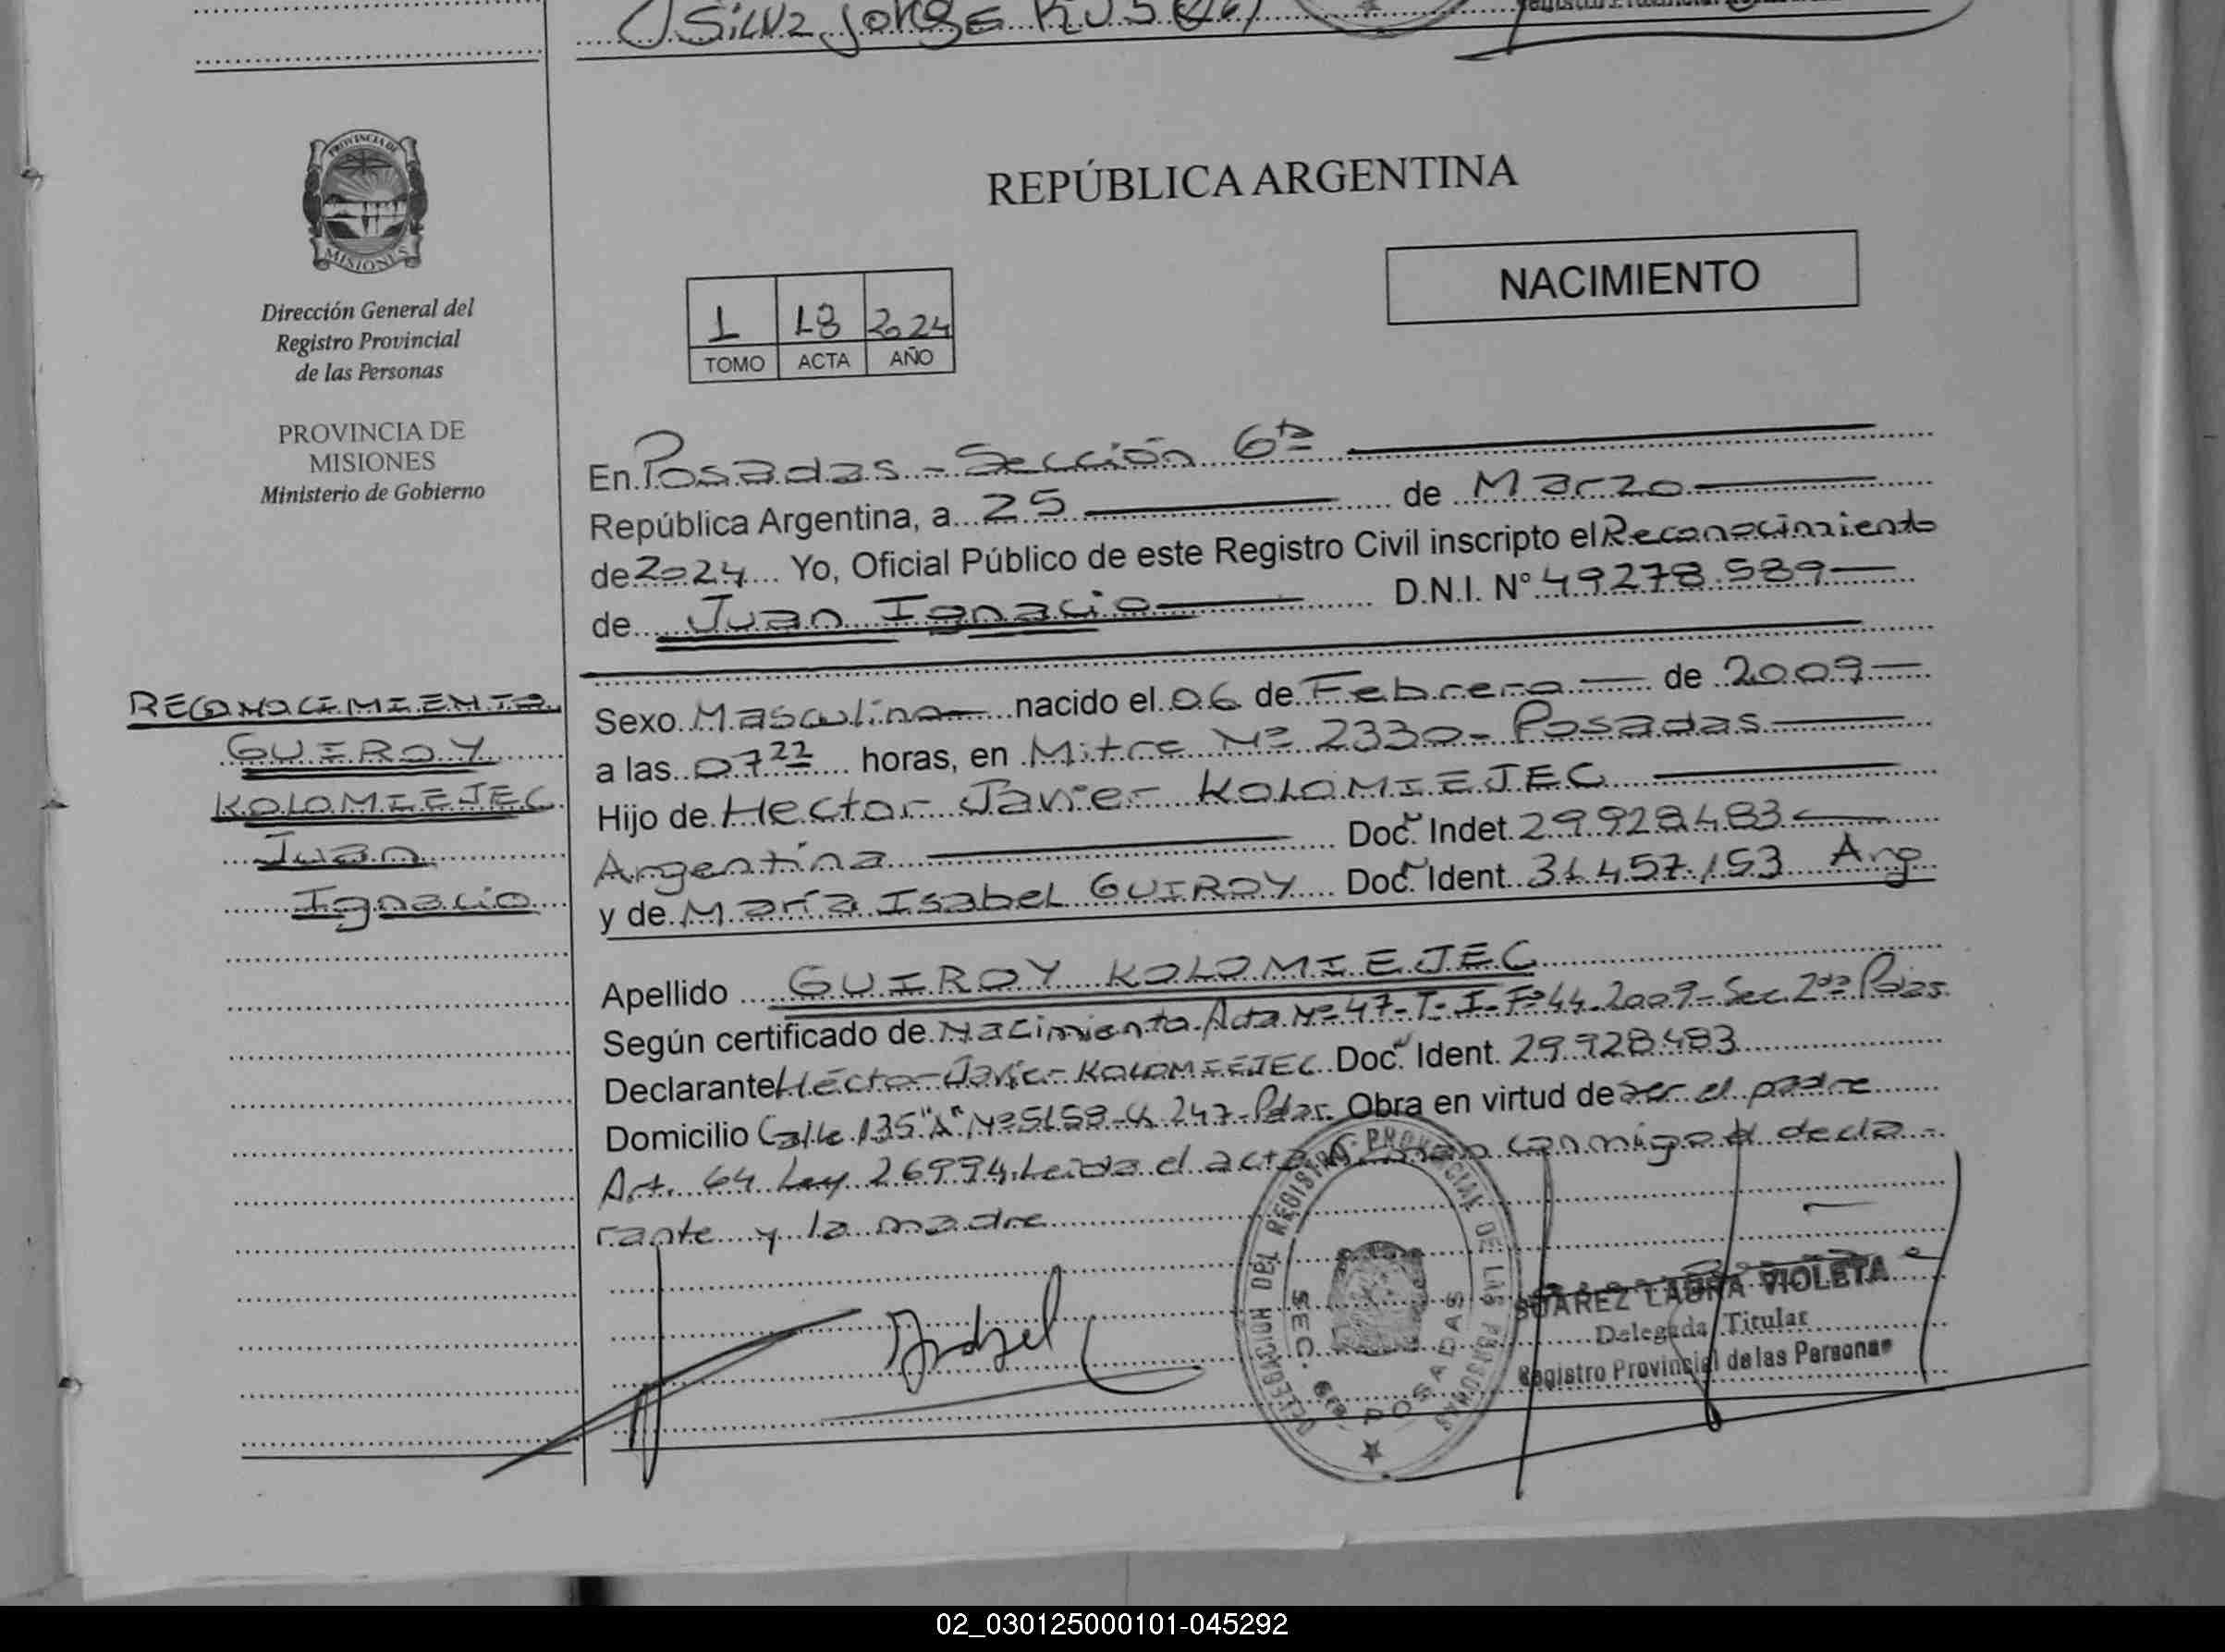 Silva Jorge
PROVINCIA DE
MISIONES
Dirección General del
Registro Provincial
de las Personas
PROVINCIA DE
MISIONES
Ministerio de Gobierno
RECONOCIMIENTO
GUIROY
KOLOMIEJEC
Juan
Ignacio
REPÚBLICA ARGENTINA
NACIMIENTO
1 18 2024
TOMO ACTA AÑO
En Posadas - Sección 6ta
República Argentina, a 25 de Marzo
de 2024 Yo, Oficial Público de este Registro Civil inscripto el Reconocimiento
de Juan Ignacio D.N.I. N° 49278.589
Sexo Masculino nacido el 06 de Febrero de 2009
a las 07 22 horas, en Mitre Nº 2330 - Posadas
Hijo de Hector Javier KOLOMIEJEC
Argentina Doc. Indet. 29.928.483
y de María Isabel GUIROY Doc. Ident. 31.457.153 Arg
Apellido GUIROY KOLOMIEJEC
Según certificado de Nacimiento. Acta Nº 47 - T - I - Fº 44. 2009 - Sec. 2da Pdas.
Declarante Héctor Javier KOLOMIEJEC Doc. Ident. 29.928.483
Domicilio Calle 135 "A" Nº 5158 - Ch 247 - Pdas. Obra en virtud de ser el padre
Art. 64 Ley 26994. Leída el acta firman conmigo el decla-
rante y la madre
DELEGACION DEL REGISTRO PROVINCIAL DE LAS PERSONAS
SEC. 6ta. POSADAS
SUAREZ LAURA VIOLETA
Delegada Titular
Registro Provincial de las Personas
02_030125000101-045292